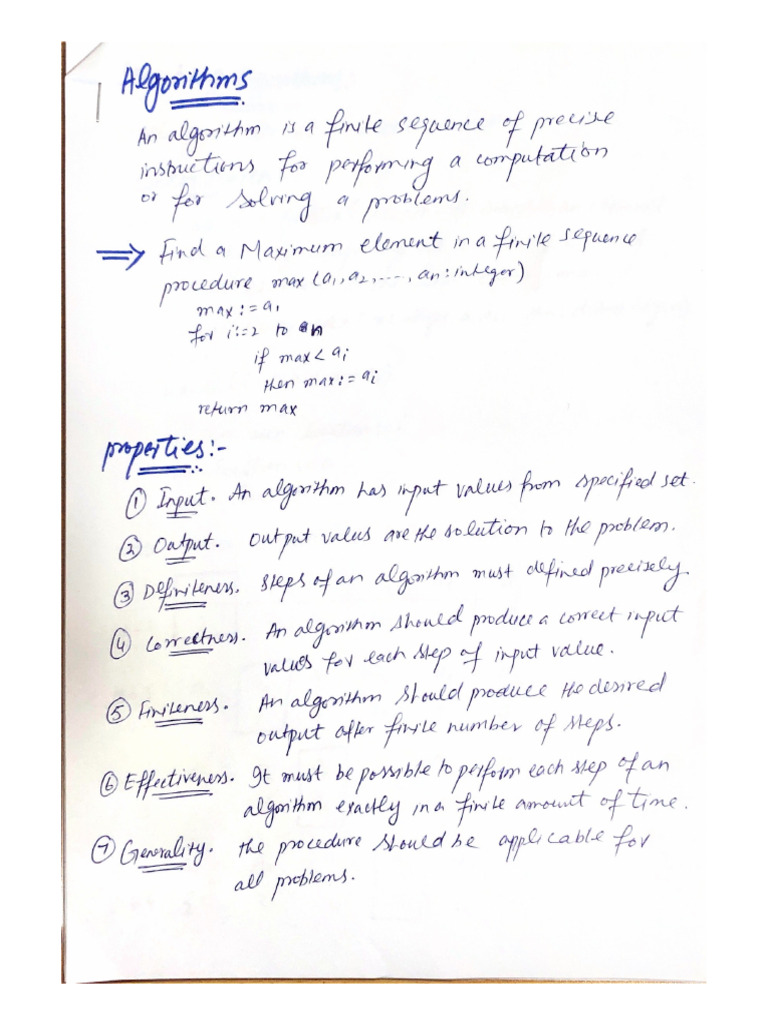 Algorithms
An algorithm is a finite sequence of precise
instructions for performing a computation
or for solving a problems.
⇒ Find a Maximum element in a finite sequence
procedure max (a1, a2, ...., an: integer)
max := a1
for i:=2 to n
if max < ai
then max := ai
return max
properties:-
① Input. An algorithm has input values from specified set.
② Output. Output values are the solution to the problem.
③ Definiteness. Steps of an algorithm must defined precisely
④ Correctness. An algorithm should produce a correct input
values for each step of input value.
⑤ Finiteness. An algorithm should produce the desired
output after finite number of steps.
⑥ Effectiveness. It must be possible to perform each step of an
algorithm exactly in a finite amount of time.
⑦ Generality. the procedure should be applicable for
all problems.